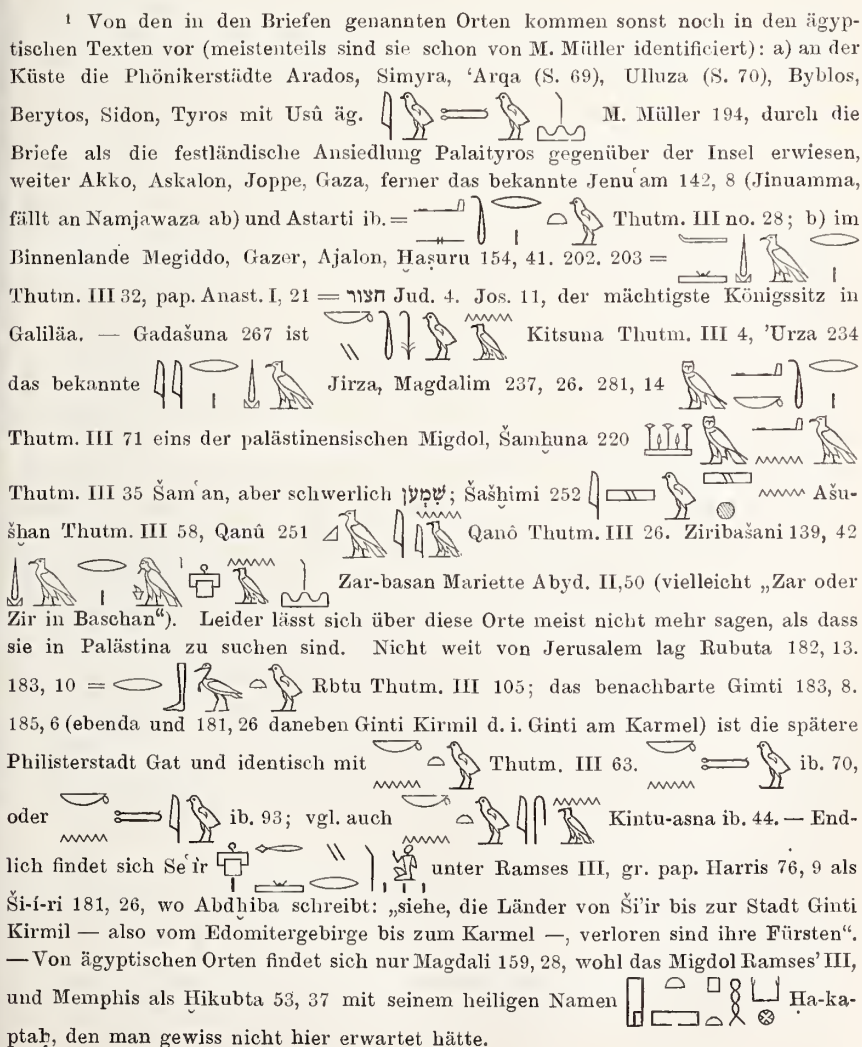 ¹ Von den in den Briefen genannten Orten kommen sonst noch in den ägyp-
tischen Texten vor (meistenteils sind sie schon von M. Müller identificiert): a) an der
Küste die Phönikerstädte Arados, Simyra, ʿArqa (S. 69), Ulluza (S. 70), Byblos,
Berytos, Sidon, Tyros mit Usû äg. M. Müller 194, durch die
Briefe als die festländische Ansiedlung Palaityros gegenüber der Insel erwiesen,
weiter Akko, Askalon, Joppe, Gaza, ferner das bekannte Jenuʿam 142, 8 (Jinuamma,
fällt an Namjawaza ab) und Astarti ib. = Thutm. III no. 28; b) im
Binnenlande Megiddo, Gazer, Ajalon, Ḫaṣuru 154, 41. 202. 203 =
Thutm. III 32, pap. Anast. I, 21 = חצור Jud. 4. Jos. 11, der mächtigste Königssitz in
Galiläa. — Gadašuna 267 ist Kitsuna Thutm. III 4, ’Urza 234
das bekannte Jirza, Magdalim 237, 26. 281, 14
Thutm. III 71 eins der palästinensischen Migdol, Šamḫuna 220
Thutm. III 35 Šamʿan, aber schwerlich שִׁמְעֹן; Šašḫimi 252 Ašu-
šḫan Thutm. III 58, Qanû 251 Qanô Thutm. III 26. Ziribašani 139, 42
Zar-basan Mariette Abyd. II,50 (vielleicht „Zar oder
Zir in Baschan“). Leider lässt sich über diese Orte meist nicht mehr sagen, als dass
sie in Palästina zu suchen sind. Nicht weit von Jerusalem lag Rubuta 182, 13.
183, 10 = Rbtu Thutm. III 105; das benachbarte Gimti 183, 8.
185, 6 (ebenda und 181, 26 daneben Ginti Kirmil d. i. Ginti am Karmel) ist die spätere
Philisterstadt Gat und identisch mit Thutm. III 63. ib. 70,
oder ib. 93; vgl. auch Kintu-asna ib. 44. — End-
lich findet sich Seʿîr unter Ramses III, gr. pap. Harris 76, 9 als
Ši-í-ri 181, 26, wo Abdḫiba schreibt: „siehe, die Länder von Ši’ir bis zur Stadt Ginti
Kirmil — also vom Edomitergebirge bis zum Karmel —, verloren sind ihre Fürsten“.
— Von ägyptischen Orten findet sich nur Magdali 159, 28, wohl das Migdol Ramses’ III,
und Memphis als Ḫikubta 53, 37 mit seinem heiligen Namen Ḥa-ka-
ptaḥ, den man gewiss nicht hier erwartet hätte.